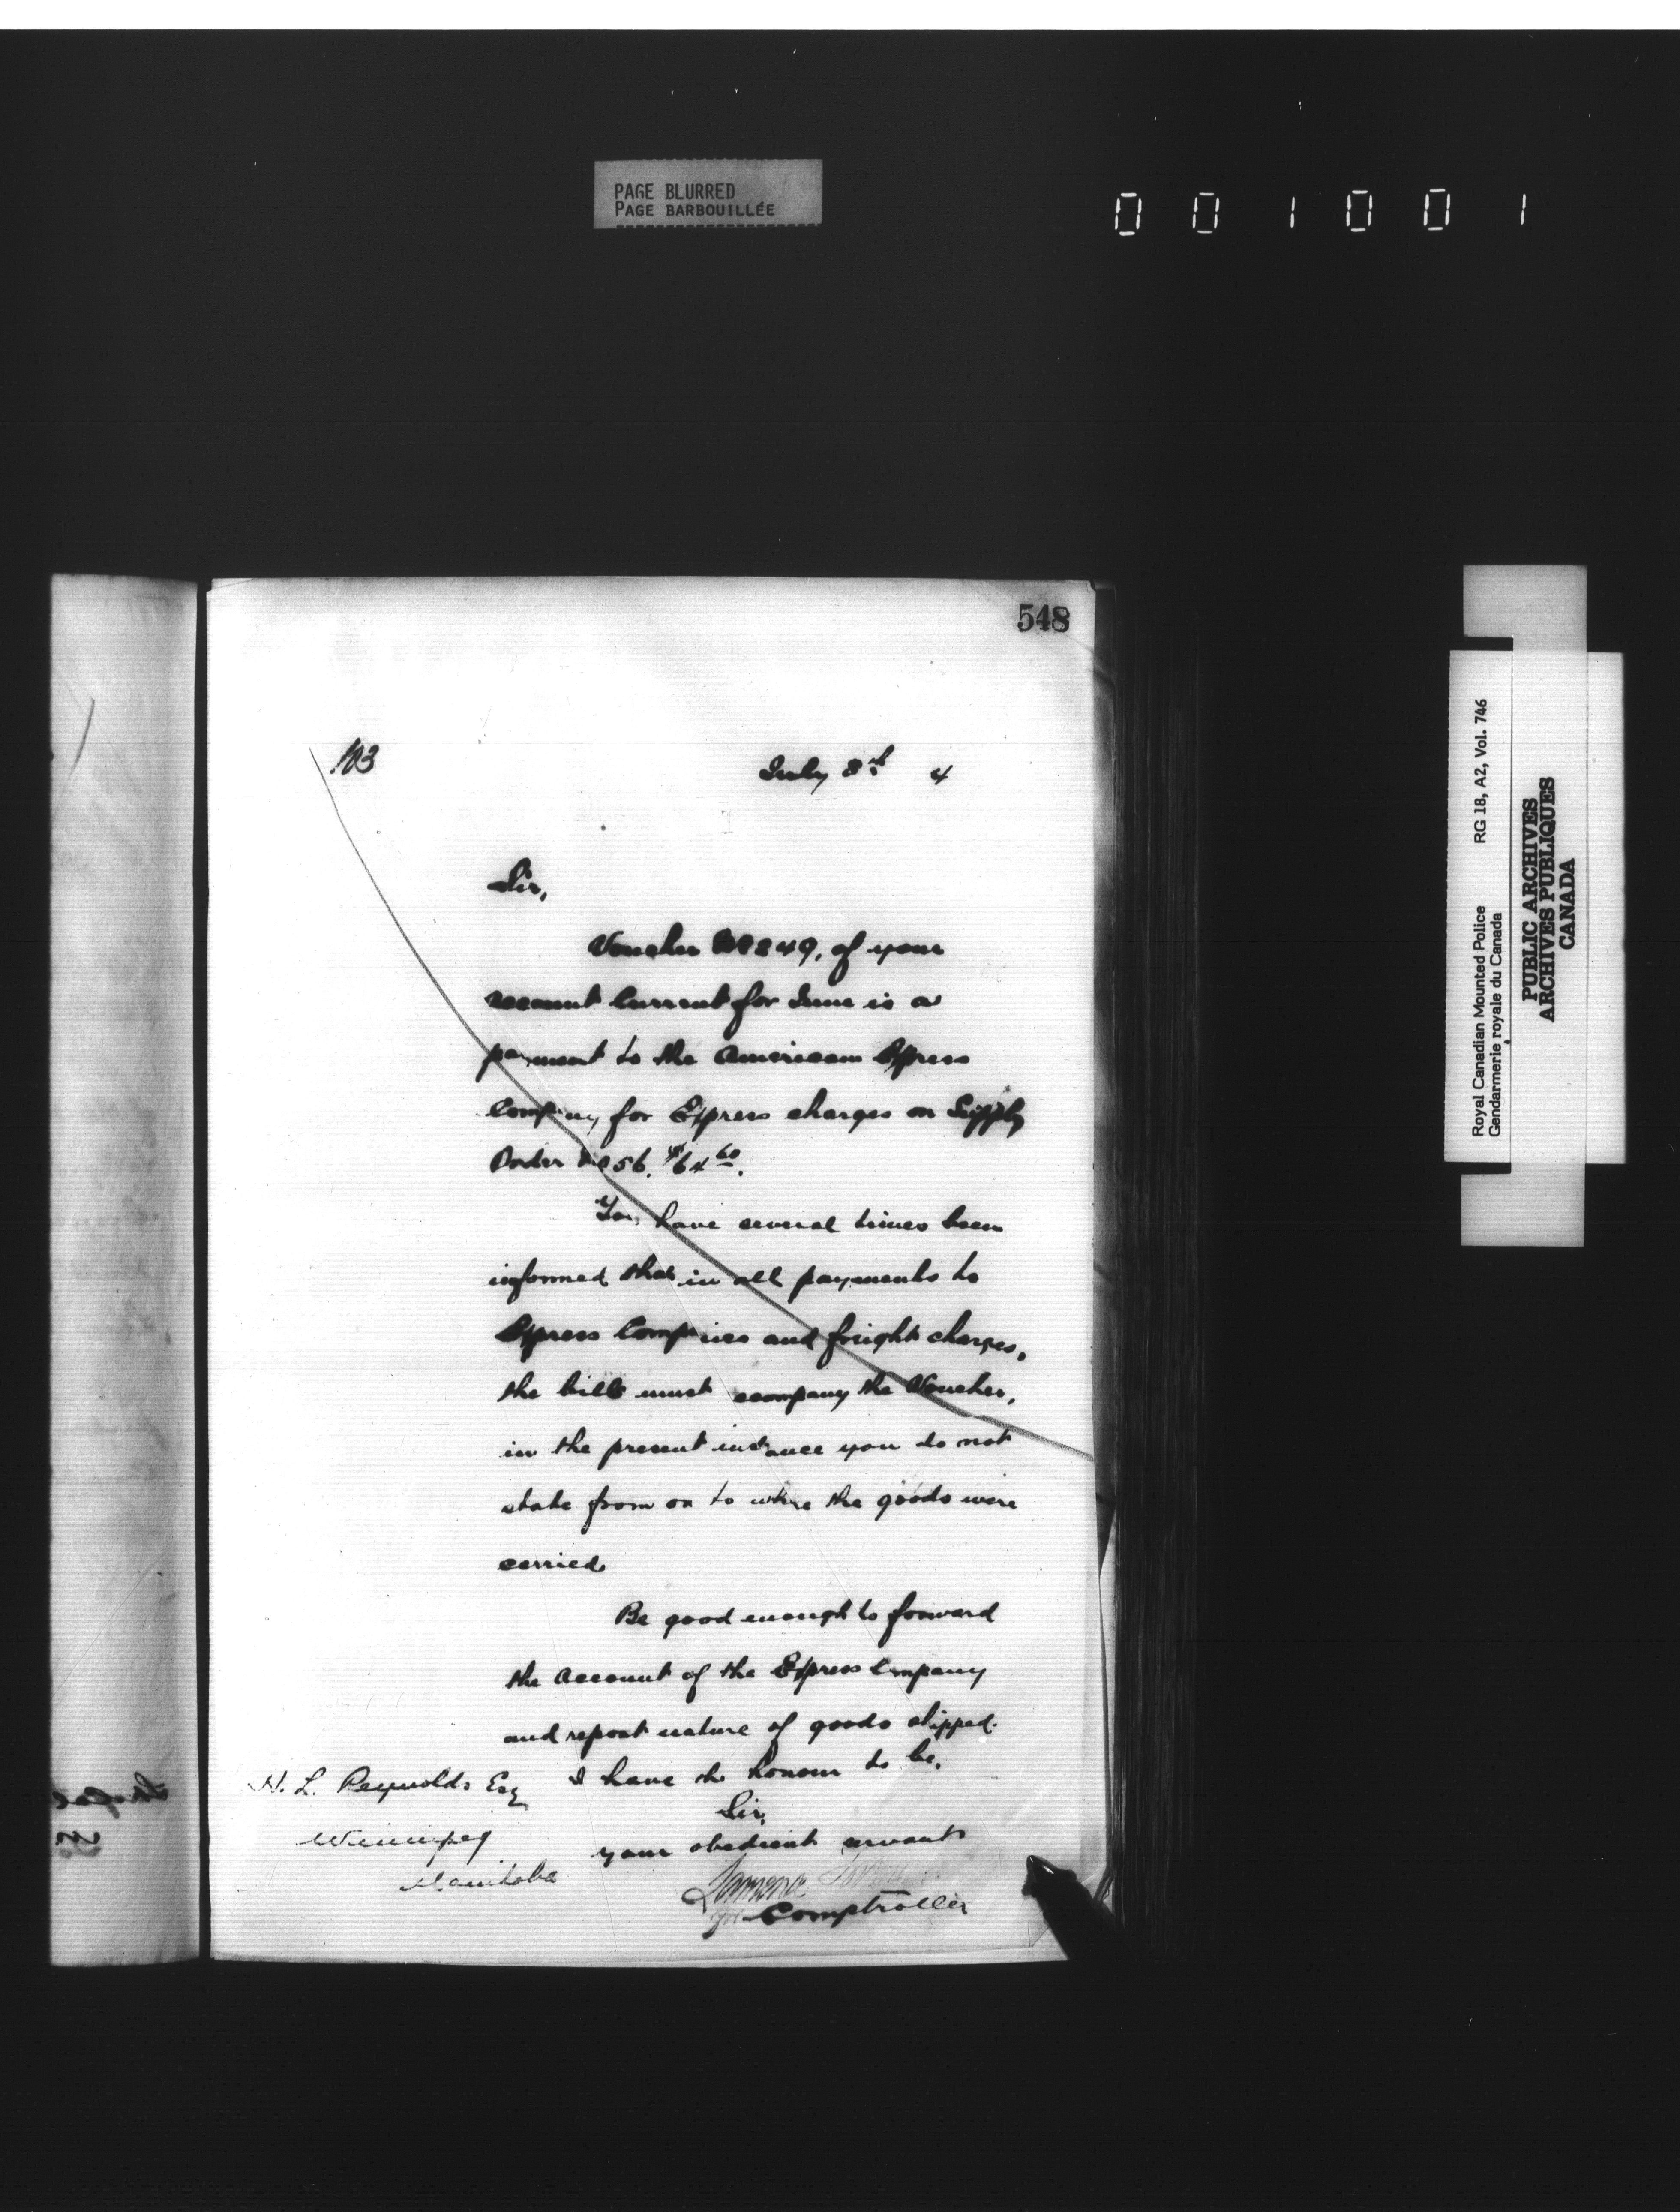 PAGE BLURRED
PAGE BARBOUILLÉE
001001
548
103
July 8th 4
Sir,
Voucher No 249, of your
account Current for June is a
payment to the American Express
Company for Express charges on Supply
Order No 56. $64 60.
You have several times been
informed that in all payments to
Express Companies and freight charges,
the bills must accompany the Voucher,
in the present instance you do not
state from or to where the goods were
carried
Be good enough to forward
the account of the Express Company
and report nature of goods shipped.
I have the honour to be,
Sir,
your obedient servant
for Comptroller
H. L. Reynolds Esq
Winnipeg
Manitoba
Royal Canadian Mounted Police RG 18, A2, Vol. 746
Gendarmerie royale du Canada
PUBLIC ARCHIVES
ARCHIVES PUBLIQUES
CANADA